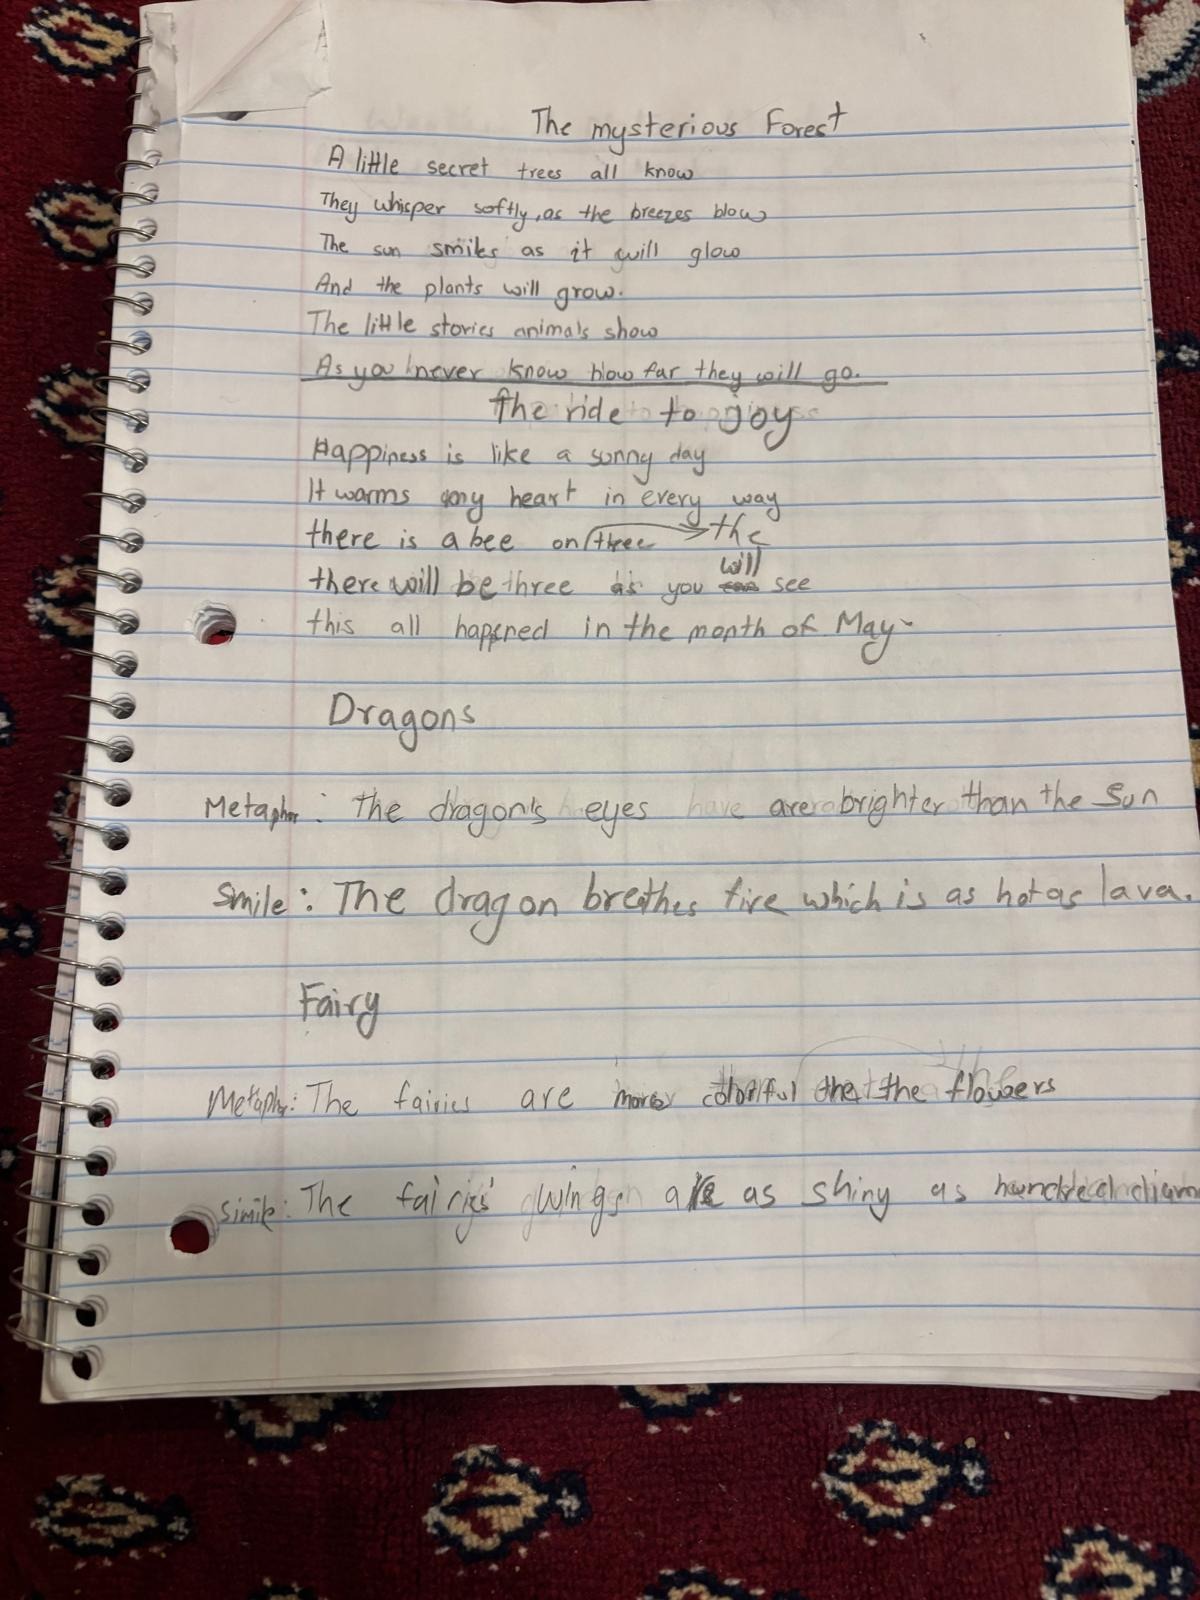 The mysterious Forest
A little secret trees all know
They whisper softly, as the breezes blow
The sun smiles as it will glow
And the plants will grow.
The little stories animals show
As you never know how far they will go.
The ride to joy
Happiness is like a sunny day
It warms my heart in every way
there is a bee on tree the
there will be three as you will see
this all happened in the month of May
Dragons
Metaphor: The dragon's eyes are brighter than the Sun
Smile: The dragon breathes fire which is as hot as lava.
Fairy
Metaphor: The fairies are more colorful the the flowers
Simile: The fairies' wings are as shiny as hundred diam